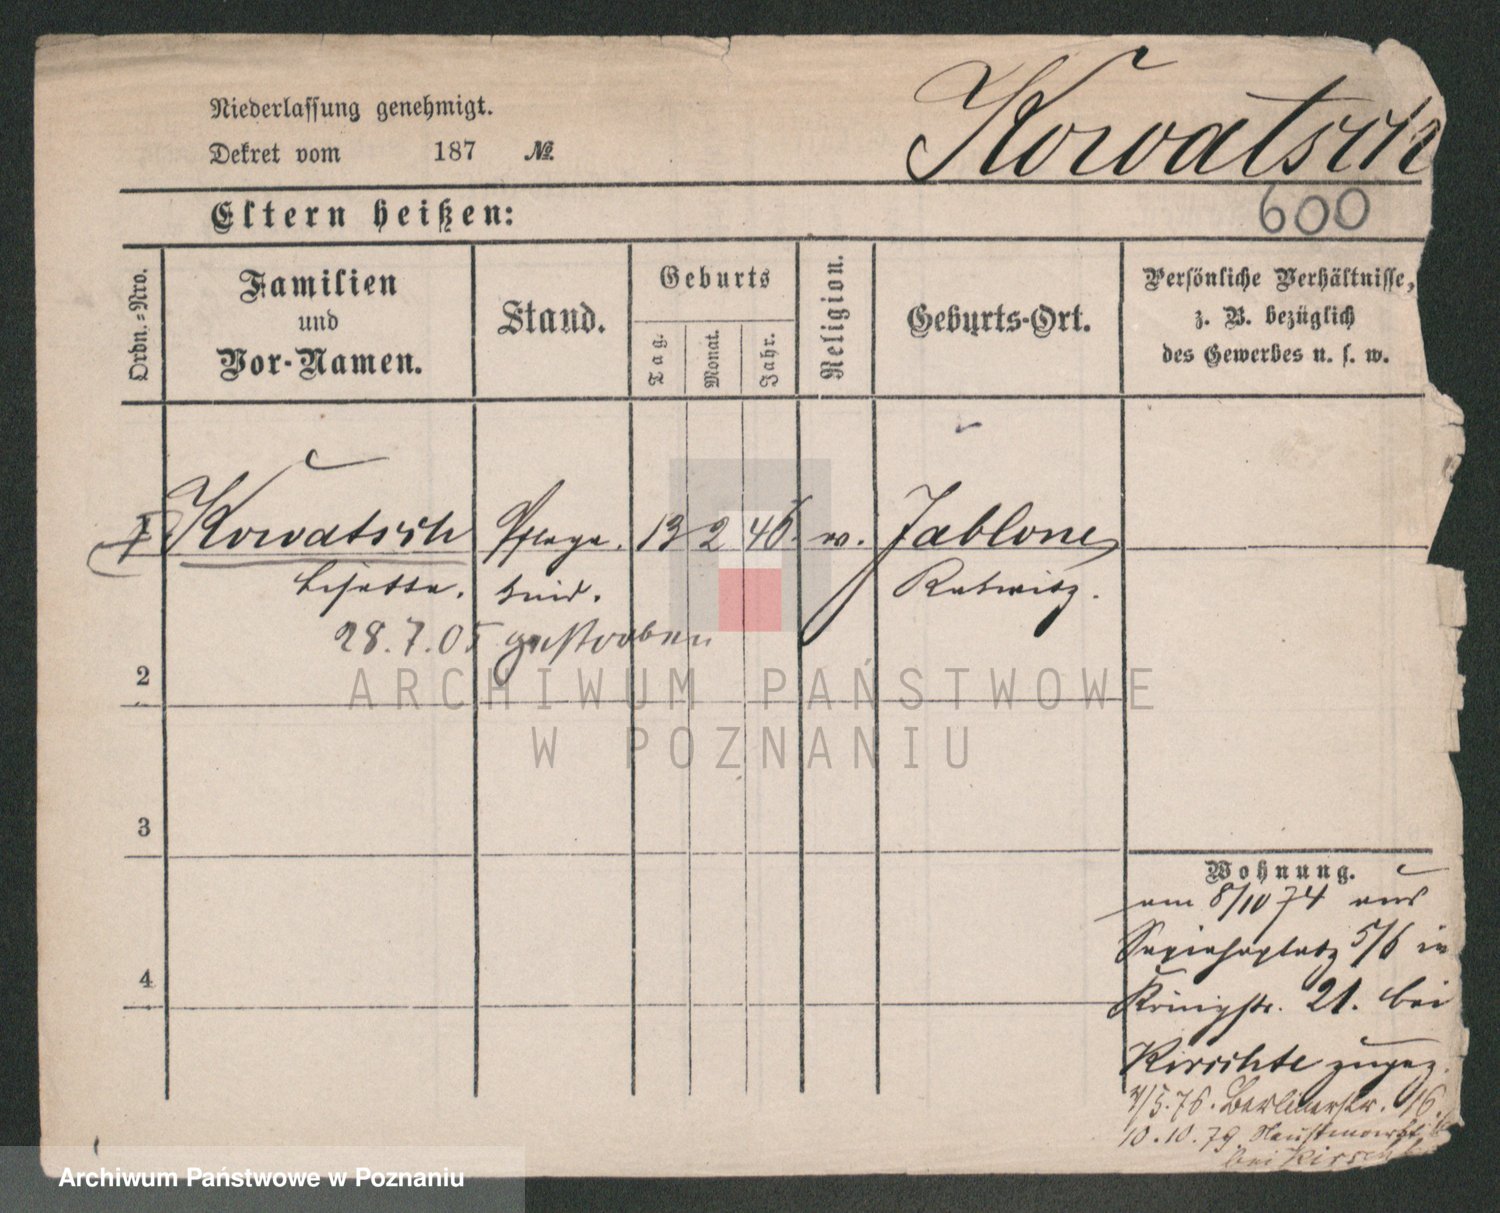 Niederlassung genehmigt.
Dekret vom 187 №
Kowatsch
600
Eltern heißen:
Ordn.-Nro.
Familien
und
Vor-Namen.
Stand.
Geburts
Tag.
Monat.
Jahr.
Religion.
Geburts-Ort.
Persönliche Verhältnisse,
z. B. bezüglich
des Gewerbes u. s. w.
1 Kowatsch Pflege- 13 2 46. Jablone
Lisette. kind. Rakwitz.
28.7.05 gestorben
2
3
4
Wohnung.
am 8/10 74 aus
Sapiehaplatz 5/6 in
Königstr. 21. bei
Kirschte zugez.
5.76. Berlinerstr. 16.
10.10.79 Neustmarkt
bei
ARCHIWUM PAŃSTWOWE
W POZNANIU
Archiwum Państwowe w Poznaniu